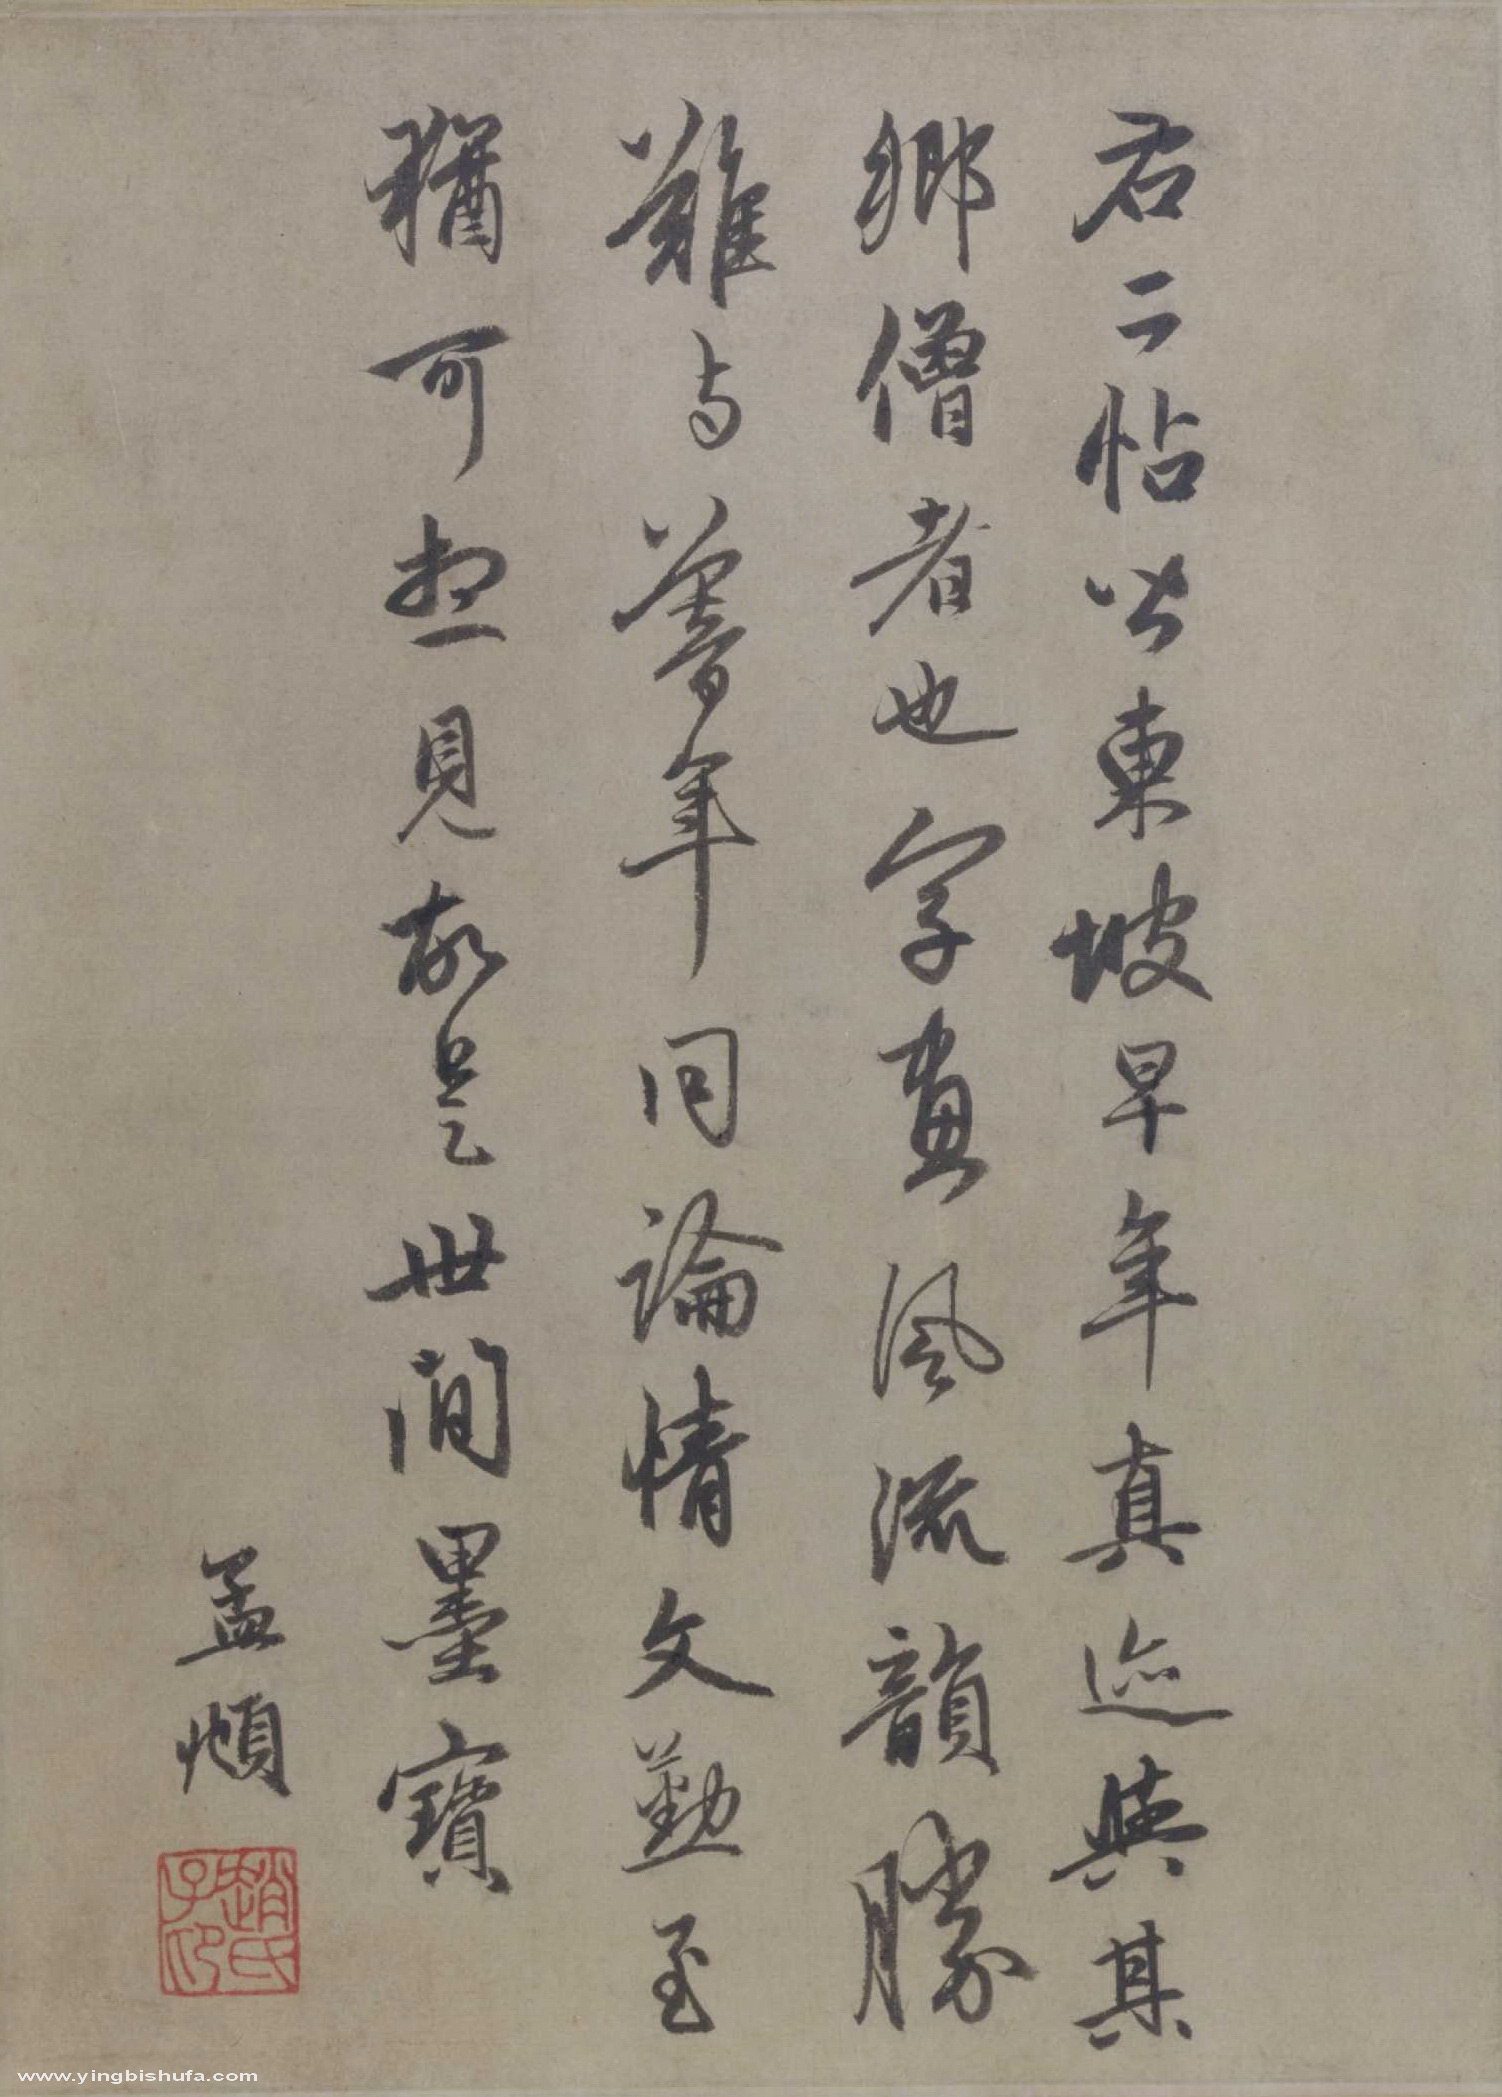 右二帖皆東坡早年真迹與其
鄉僧者也字畫風流韻勝
難與暮年同論情文勤至
猶可想見故是世間墨寶
孟頫
趙氏子印
www.yingbishufa.com